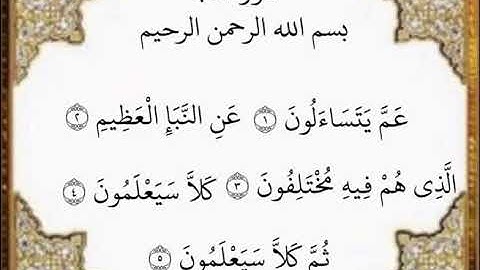 بسم الله الرحمن الرحيم
عَمَّ يَتَسَاءَلُونَ ١ عَنِ النَّبَإِ الْعَظِيمِ ٢
الَّذِى هُمْ فِيهِ مُخْتَلِفُونَ ٣ كَلاَّ سَيَعْلَمُونَ ٤
ثُمَّ كَلاَّ سَيَعْلَمُونَ ٥